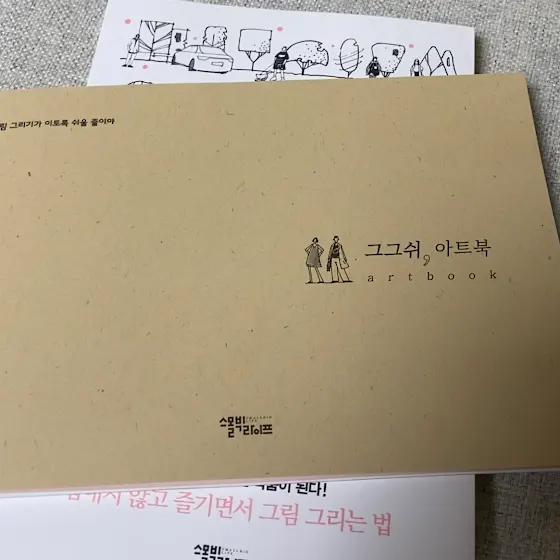 그리기가 이토록 쉬울 줄이야
그그쉬, 아트북
artbook
스몰빅라이프
SMALLBIG
LIFE
된다!
않고 즐기면서 그림 그리는 법
스몰빅